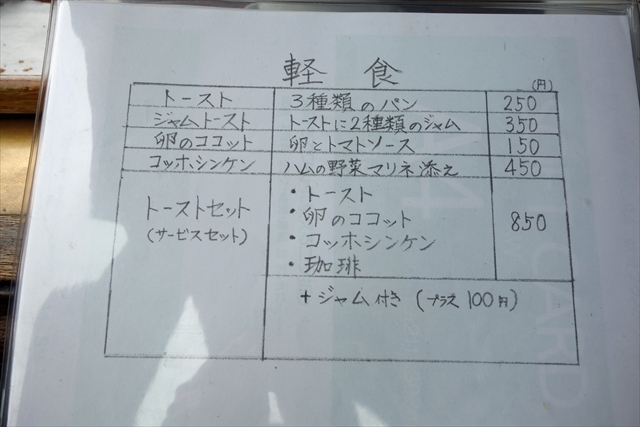 軽食
(円)
トースト 3種類のパン 250
ジャムトースト トーストに2種類のジャム 350
卵のココット 卵とトマトソース 150
コッホシンケン ハムの野菜マリネ添え 450
トーストセット
(サービスセット)
・トースト
・卵のココット
・コッホシンケン
・珈琲
850
+ジャム付き (プラス100円)